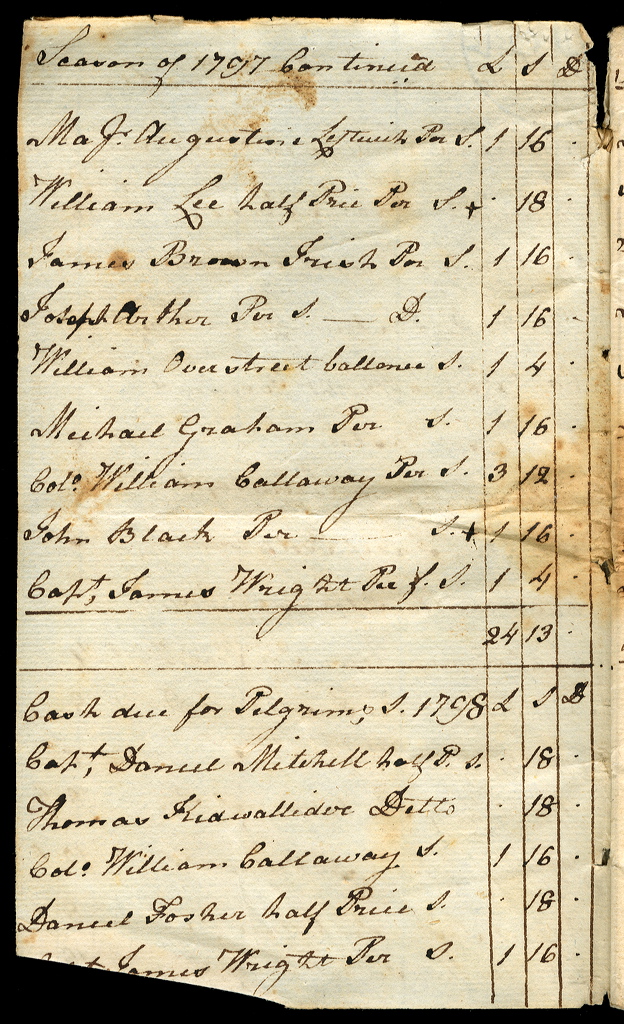 Season of 1797 Continued £ S D
Majr. Augustine Leftwich Per S. 1 16 .
William Lee half Price Per S. + . 18 .
James Brown Irish Per S. 1 16 .
Joseph Arther Per S. — D. 1 16 .
William Overstreet ballance S. 1 4 .
Michael Graham Per S. 1 16 .
Colo. William Callaway Per S. 3 12 .
John Black Per — S. + 1 16 .
Capt, James Wright Per S. 1 4 .
24 13 .
Cash due for Pilgrims S. 1798 £ S D
Capt, Daniel Mitchell half P. S. . 18 .
Thomas Ditto . 18 .
Colo. William Callaway S. 1 16 .
Daniel Fosher half Price S. . 18 .
James Wright Per S. 1 16 .